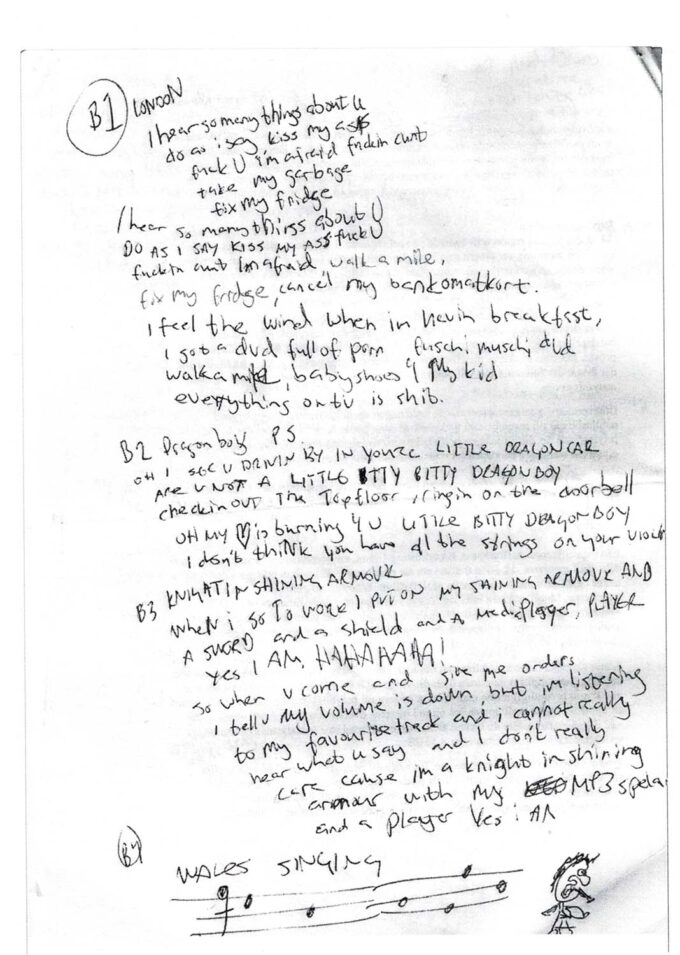 B1 LONDON
I hear so many things about U
do as i say kiss my ass
fuck U i'm afraid fuckin cunt
take my garbage
fix my fridge
I hear so many things about U
DO AS I SAY KISS MY ASS FUCK U
fuckin cunt Im afraid, walk a mile,
fix my fridge, cancel my bankomatkort.
I feel the wind when im havin breakfast,
I got a dvd full of porn fuschi muschi did
walk a mile, babyshoes 4 My kid
everything on tv is shit.
B2 Dragonboy PS.
OH I SEE U DRIVIN BY IN YOURE LITTLE DRAGONCAR
ARE U NOT A LITTLE BITTY BITTY DRAGONBOY
checkin OUT The Topfloor, ringin on the doorbell
OH MY is burning 4 U LITTLE BITTY DRAGONBOY
I don't think you have all the strings on your
B3 KNIGHT IN SHINING ARMOUR
When i go To work I PUT ON MY SHINING ARMOUR AND
A SWORD and a shield and A Mediaplayer, PLAYER
Yes I AM, HAHAHAHA!
so when u come and give me orders
I tell u my volume is down, but im listening
to my favourite track and i cannot really
hear what u say and I don't really
care cause im a knight in shining
armour with my MP3 spela
and a player Yes i AM
B4
WALES SINGING